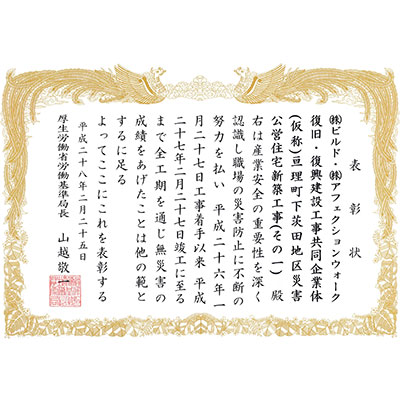 表彰状
㈱ビルド・㈱アフェクションウォーク
復旧・復興建設工事共同企業体
(仮称)亘理町下茨田地区災害
公営住宅新築工事(その一) 殿
右は産業安全の重要性を深く
認識し職場の災害防止に不断の
努力を払い 平成二十六年一
月二十七日工事着手以来 平成
二十七年二月十七日竣工に至る
まで全工期を通じ無災害の
成績をあげたことは他の範と
するに足る
よってここにこれを表彰する
平成二十八年二月二十五日
厚生労働省労働基準局長 山越敬一